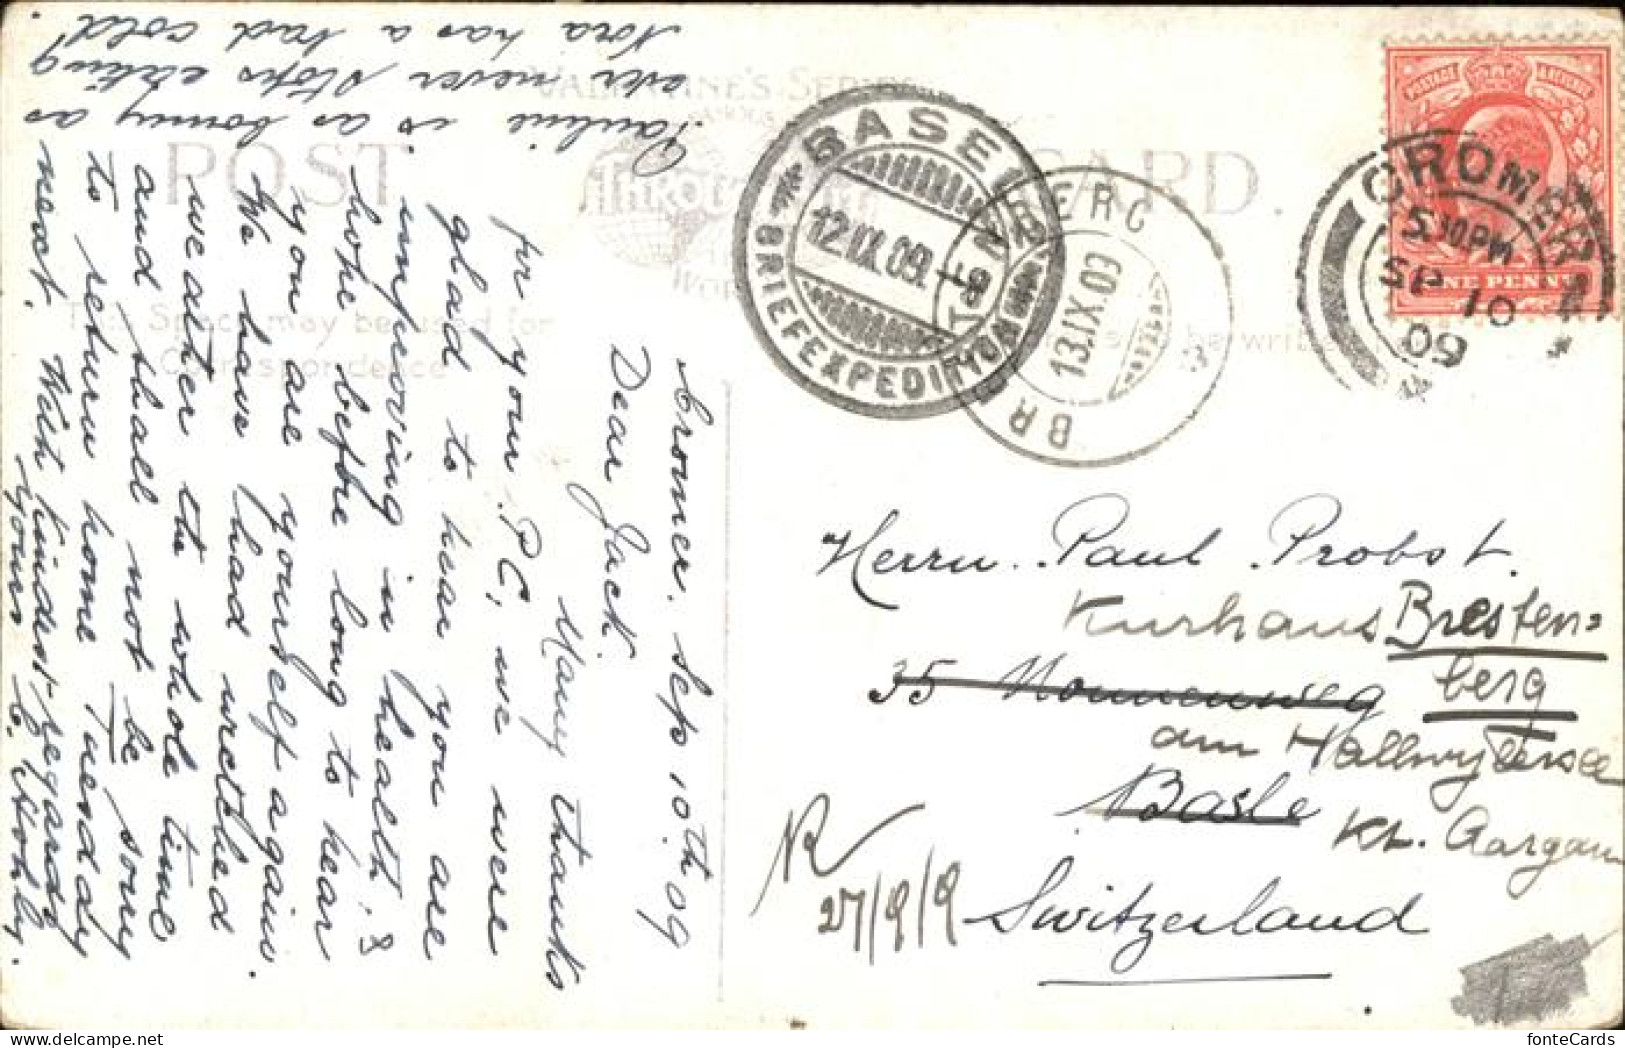 Cromer. Sep 10th 09
Dear Jack.
Many thanks
fr your P.C, we were
glad to hear you are
improving in health, &
hope before long to hear
you are yourself again.
We have had wretched
weather the whole time
and shall not be sorry
to return home Tuesday
next. With kindest regards
Yours
Pauline is as bonny as
ever never stops eating
Nora has a bad cold!
VALENTINE'S SERIES
FAMOUS
POST CARD.
THROUGHOUT
WORLD
This Space may be used for
Correspondence
be written
BASEL
12.IX.09.
BRIEFEXPEDITION
BRESTENBERG
13.IX.09
CROMER
5.30PM
SP 10
09
POSTAGE REVENUE
ONE PENNY
Herrn. Paul Probst.
Kurhaus Bresten=
berg
35 Nonnenweg
am Hallwylersee
Basle
Kt. Aargau
Switzerland
27/9/9
fonteCards